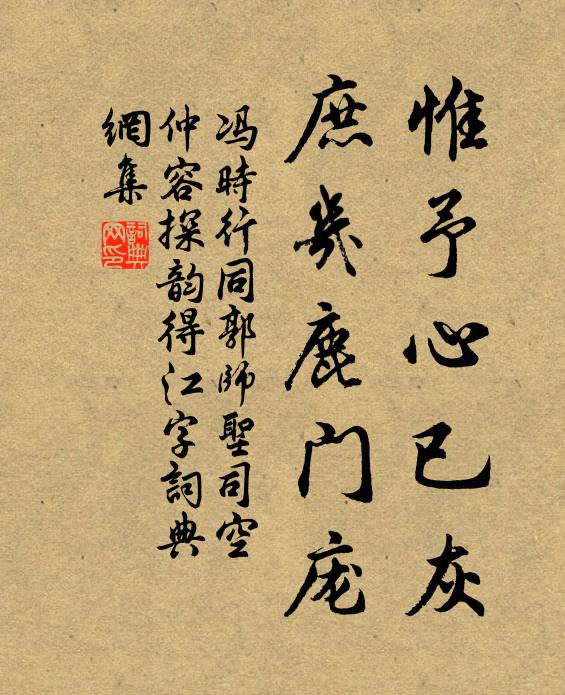 惟予心已灰
庶几鹿门庞
冯時行同郭師聖司空
仲容探韵得江字詞典
網集
詞典
网印